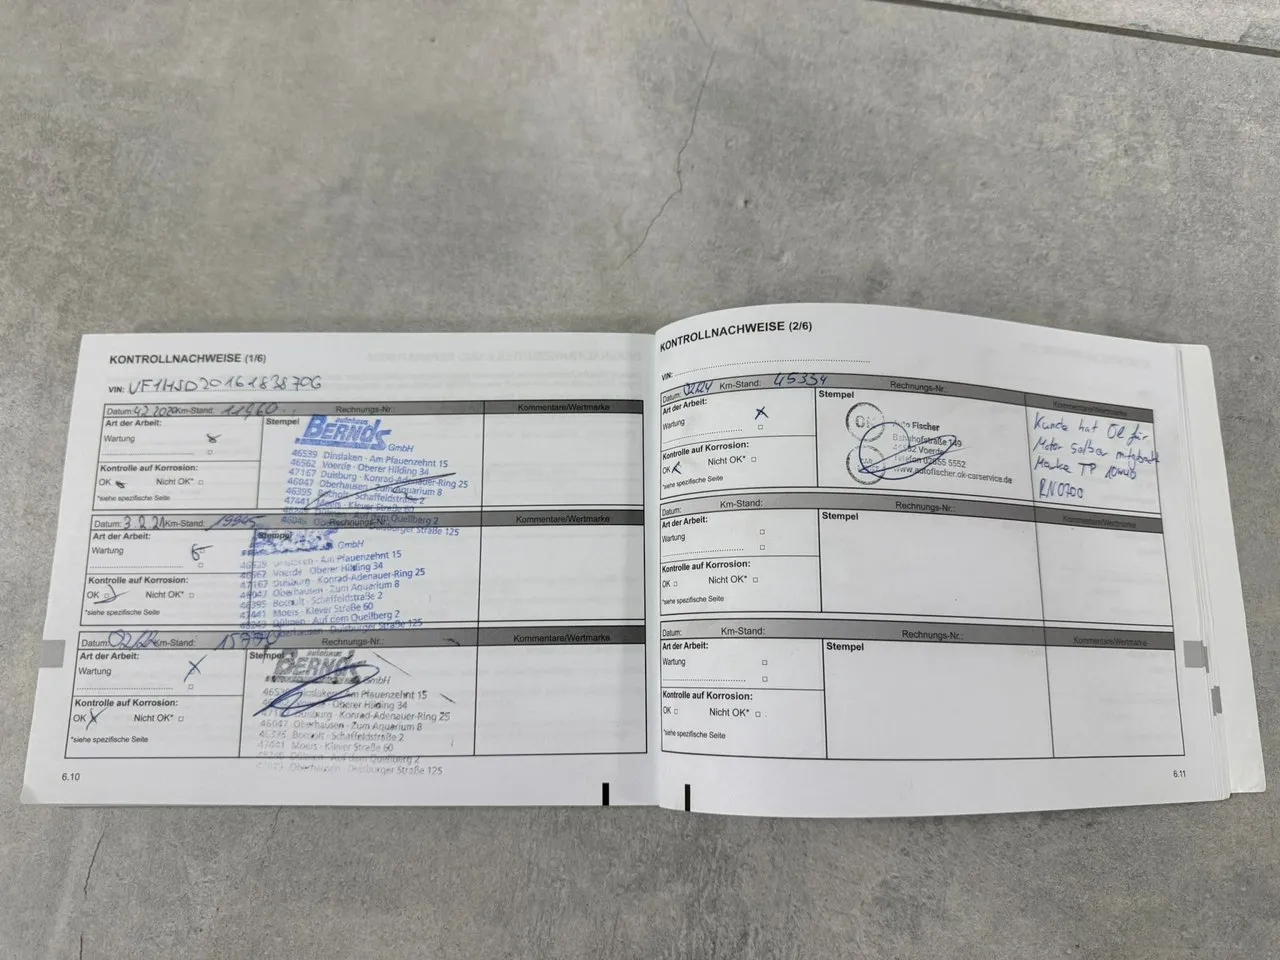 KONTROLLNACHWEISE (1/6)
VIN: VF1HJD20161838706
Datum: 4.2.2020 Km-Stand: 11960 Rechnungs-Nr.: Kommentare/Wertmarke
Art der Arbeit:
Wartung
Stempel
autohaus
BERNDS GmbH
46539 Dinslaken · Am Pfauenzehnt 15
46562 Voerde · Oberer Hilding 34
47167 Duisburg · Konrad-Adenauer-Ring 25
46047 Oberhausen · Zum Aquarium 8
46395 Bocholt · Schaffeldstraße 2
47441 Moers · Klever Straße 60
Auf dem Quellberg 2
Duisburger Straße 125
Kontrolle auf Korrosion:
OK Nicht OK*
*siehe spezifische Seite
Datum: 3.2.21 Km-Stand: Rechnungs-Nr.: Kommentare/Wertmarke
Art der Arbeit:
Wartung
Stempel
GmbH
Dinslaken · Am Pfauenzehnt 15
46562 Voerde · Oberer Hilding 34
47167 Duisburg · Konrad-Adenauer-Ring 25
46047 Oberhausen · Zum Aquarium 8
46395 Bocholt · Schaffeldstraße 2
47441 Moers · Klever Straße 60
Dülmen · Auf dem Quellberg 2
Oberhausen · Duisburger Straße 125
Kontrolle auf Korrosion:
OK Nicht OK*
*siehe spezifische Seite
Datum: Km-Stand: Rechnungs-Nr.: Kommentare/Wertmarke
Art der Arbeit:
Wartung
Stempel
autohaus
BERNDS GmbH
Dinslaken · Am Pfauenzehnt 15
Oberer Hilding 34
Duisburg · Konrad-Adenauer-Ring 25
46047 Oberhausen · Zum Aquarium 8
46395 Bocholt · Schaffeldstraße 2
47441 Moers · Klever Straße 60
Dülmen · Auf dem Quellberg 2
Oberhausen · Duisburger Straße 125
Kontrolle auf Korrosion:
OK Nicht OK*
*siehe spezifische Seite
6.10
KONTROLLNACHWEISE (2/6)
VIN:
Datum: 02/24 Km-Stand: 45334 Rechnungs-Nr.: Kommentare/Wertmarke
Art der Arbeit:
Wartung
Stempel
OK
Auto Fischer
Bahnhofstraße 149
46562 Voerde
Telefon 02855 5552
www.autofischer.ok-carservice.de
Kunde hat Öl für
Motor selber mitgebracht
Marke TP 10W40
RN0700
Kontrolle auf Korrosion:
OK Nicht OK*
*siehe spezifische Seite
Datum: Km-Stand: Rechnungs-Nr.: Kommentare/Wertmarke
Art der Arbeit:
Wartung
Stempel
Kontrolle auf Korrosion:
OK Nicht OK*
*siehe spezifische Seite
Datum: Km-Stand: Rechnungs-Nr.: Kommentare/Wertmarke
Art der Arbeit:
Wartung
Stempel
Kontrolle auf Korrosion:
OK Nicht OK*
*siehe spezifische Seite
6.11